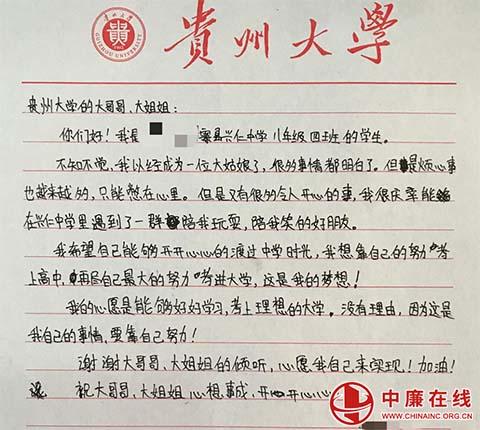 貴州大學
GUIZHOU UNIVERSITY
贵州大学的大哥哥、大姐姐：
你们好！我是 寨县兴仁中学八年级四班的学生。
不知不觉，我以经成为一位大姑娘了，很多事情都明白了。但是烦心事
也越来越多，只能憋在心里。但是又有很多令人开心的事，我很庆幸能
在兴仁中学里遇到了一群陪我玩耍，陪我笑的好朋友。
我希望自己能够开开心心的渡过中学时光，我想靠自己的努力考
上高中，再尽自己最大的努力考进大学，这是我的梦想！
我的心愿是能够好好学习，考上理想的大学。没有理由，因为这是
我自己的事情，要靠自己努力！
谢谢大哥哥、大姐姐的倾听，心愿我自己来实现！加油！
祝大哥哥、大姐姐心想事成，开开心心
中廉在线
WWW.CHINAINC.ORG.CN